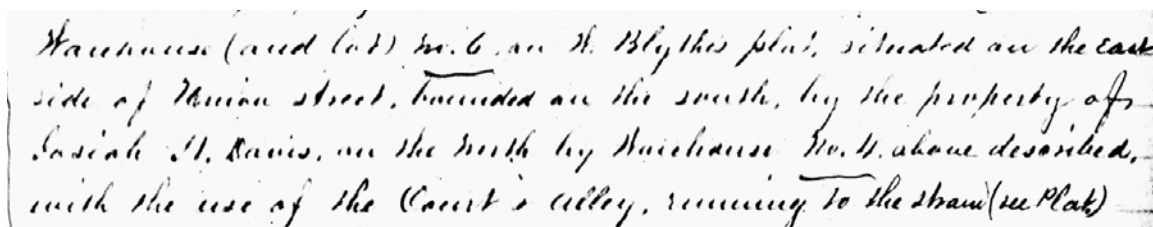 Warehouse (and lot) No. 6, on W. Blythes plat, situated on the east
side of Union street, bounded on the south, by the property of
Josiah H. Davis, on the North by Warehouse No. 4. above described,
with the use of the Court & alley, running to the (see Plat)